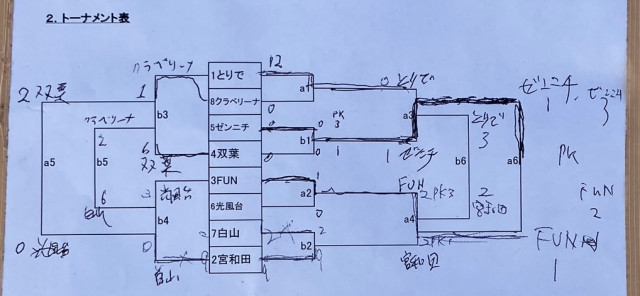 2. トーナメント表
クラベリーナ
1とりで
12
a1
0
とりで
ゼンニチ
1
ゼンニチ
3
2 双葉
1
8クラベリーナ
0
a3
クラベリーナ
b3
5ゼンニチ
0
PK
3
b1
とりで
3
2
a5
b5
6
双葉
4双葉
0
0
1
1
ゼンニチ
b6
a6
PK
3FUN
1
FUN
2PK3
2
宮和田
FUN
2
6
白山
3
光風台
6光風台
a2
0
b4
7白山
2
2
a4
FUN
1
0 光風台
0
白山
2宮和田
b2
宮和田
2PK1